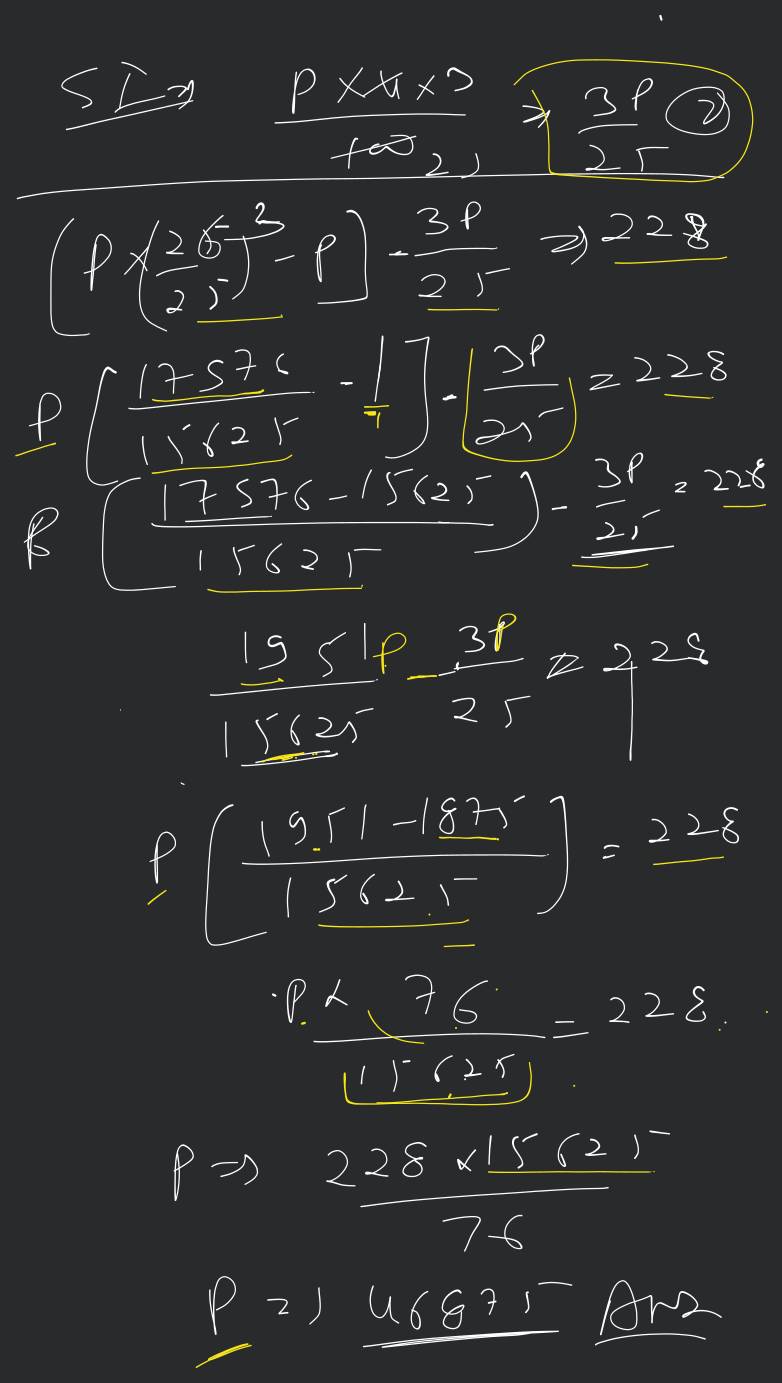 SI ⇒ P×4×3/100 25 ⇒ 3P/25 (2)
[P×(26/25)³ - P] - 3P/25 ⇒ 228
P [17576/15625 - 1/1] - [3P/25] = 228
P [17576-15625/15625] - 3P/25 = 228
1951P/15625 - 3P/25 = 228
P [1951-1875/15625] = 228
P × 76/15625 = 228
P ⇒ 228 × 15625/76
P ⇒ 46875 Ans